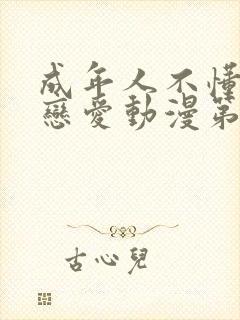 成年人不懂
戀愛動漫第
古心兒